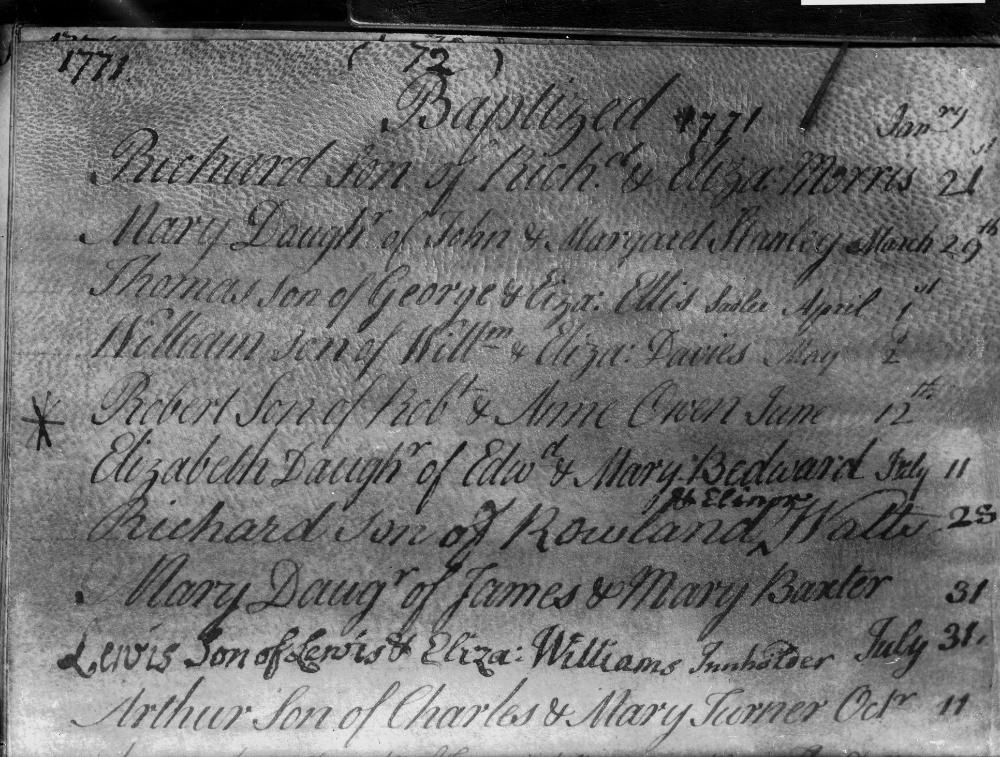 1771. ( 72 )
Baptized 1771 Janry
Richard Son of Richd & Eliza: Morris 21st
Mary Daughr of John & Margaret Stanley March 29th
Thomas Son of George & Eliza: Ellis Sadler April 1st
William Son of Willm & Eliza: Davies May 2d
Robert Son of Robt & Anne Owen June 12th
Elizabeth Daughr of Edwd & Mary Bedward July 11
& Elinor
Richard Son of Rowland ^ Watts 28
Mary Daugr of James & Mary Baxter 31
Lewis Son of Lewis & Eliza: Williams Innholder July 31.
Arthur Son of Charles & Mary Turner Octr 11